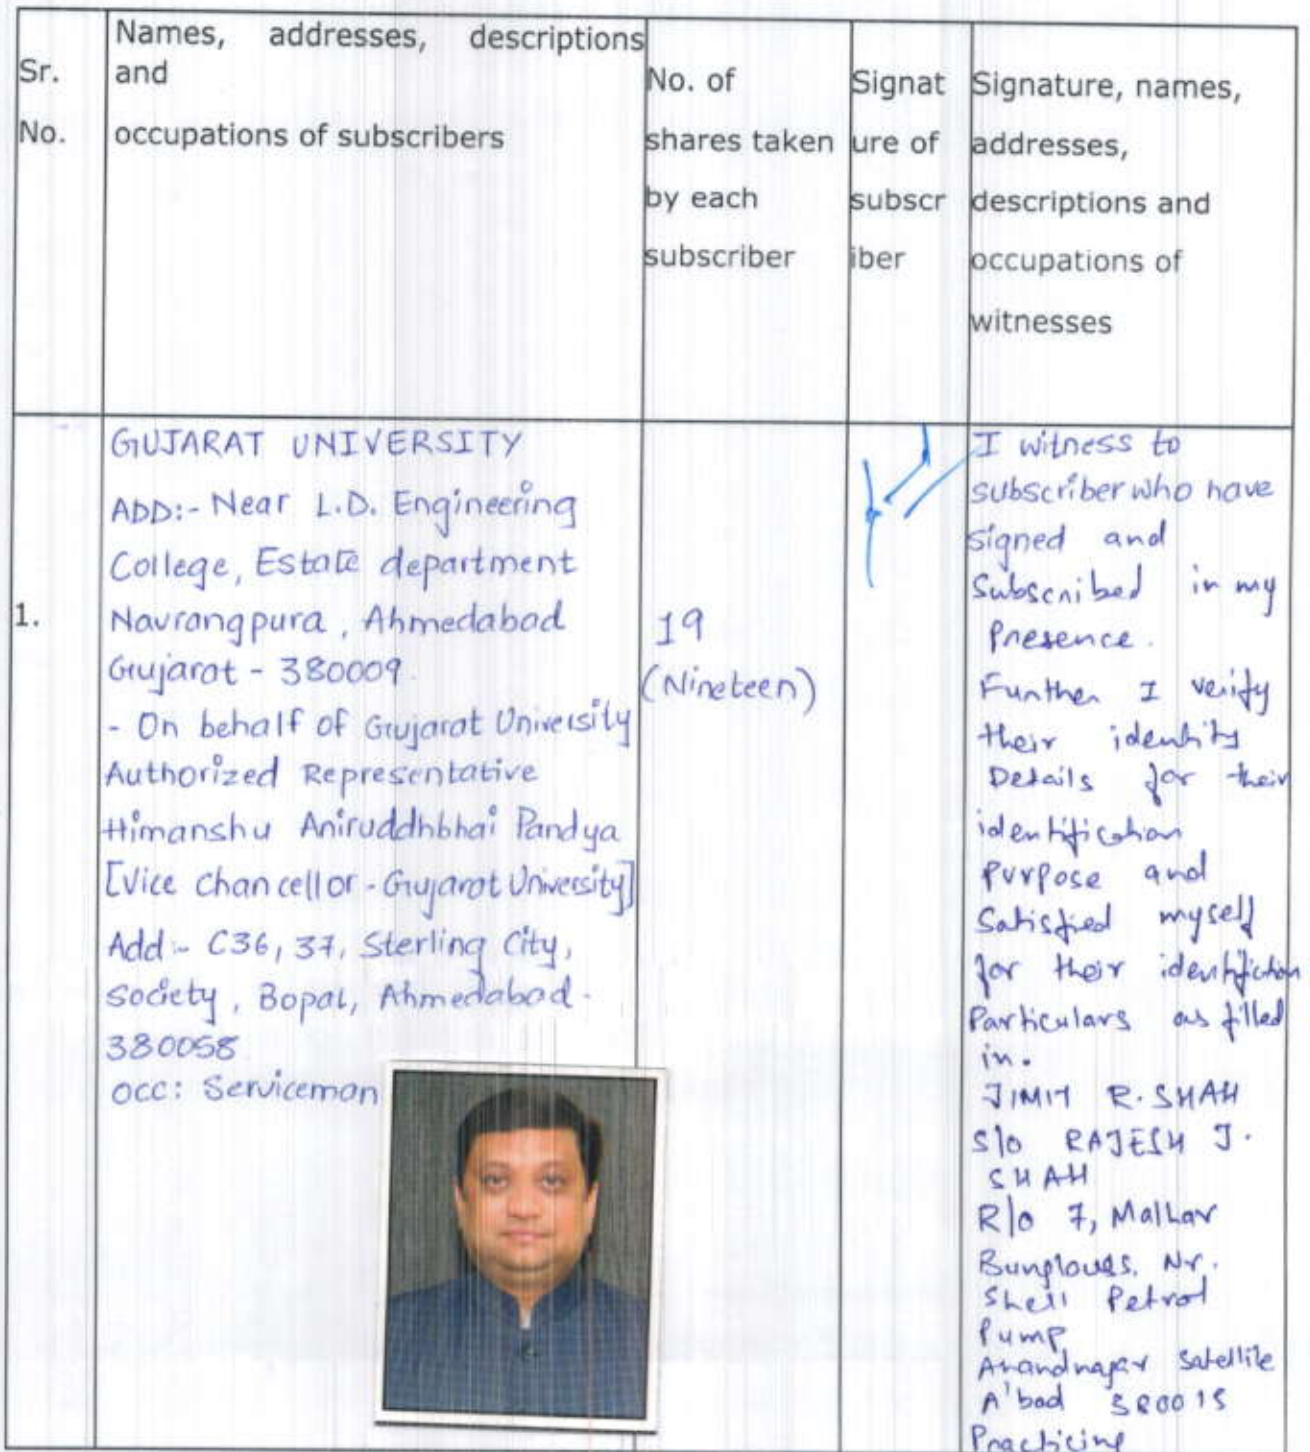 Sr.
No.
Names, addresses, descriptions
and
occupations of subscribers
No. of
shares taken
by each
subscriber
Signat
ure of
subscr
iber
Signature, names,
addresses,
descriptions and
occupations of
witnesses
1.
GUJARAT UNIVERSITY
ADD:- Near L.D. Engineering
College, Estate department
Navrangpura, Ahmedabad
Gujarat - 380009.
- On behalf of Gujarat University
Authorized Representative
Himanshu Aniruddhbhai Pandya
[Vice chancellor - Gujarat University]
Add:- C36, 37, Sterling City,
Society, Bopal, Ahmedabad.
380058
occ: Serviceman
19
(Nineteen)
I witness to
subscriber who have
signed and
Subscribed in my
Presence.
Further I verify
their identity
Details for their
identification
Purpose and
Satisfied myself
for their identifiction
Particulars as filled
in.
JIMIT R. SHAH
S/o RAJESH J.
SHAH
R/o 7, Malhar
Bunglows, Nr.
Shell Petrol
Pump
Anandnagar Satellite
A'bad 380015
Practicing